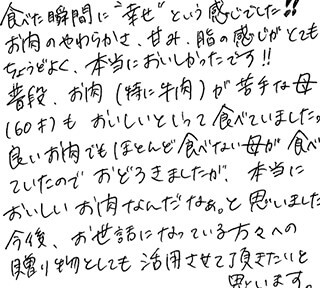 食べた瞬間に"幸せ"という感じでした!!
お肉のやわらかさ、甘み、脂の感じがとても
ちょうどよく、本当においしかったです!!
普段、お肉(特に牛肉)が苦手な母
(60才)も おいしいといって食べていました。
良いお肉でもほとんど食べない母が食べ
ていたので おどろきましたが、本当に
おいしい お肉なんだなぁ。と思いました
今後、お世話になっている方々への
贈り物としても 活用させて頂きたいと
思います。